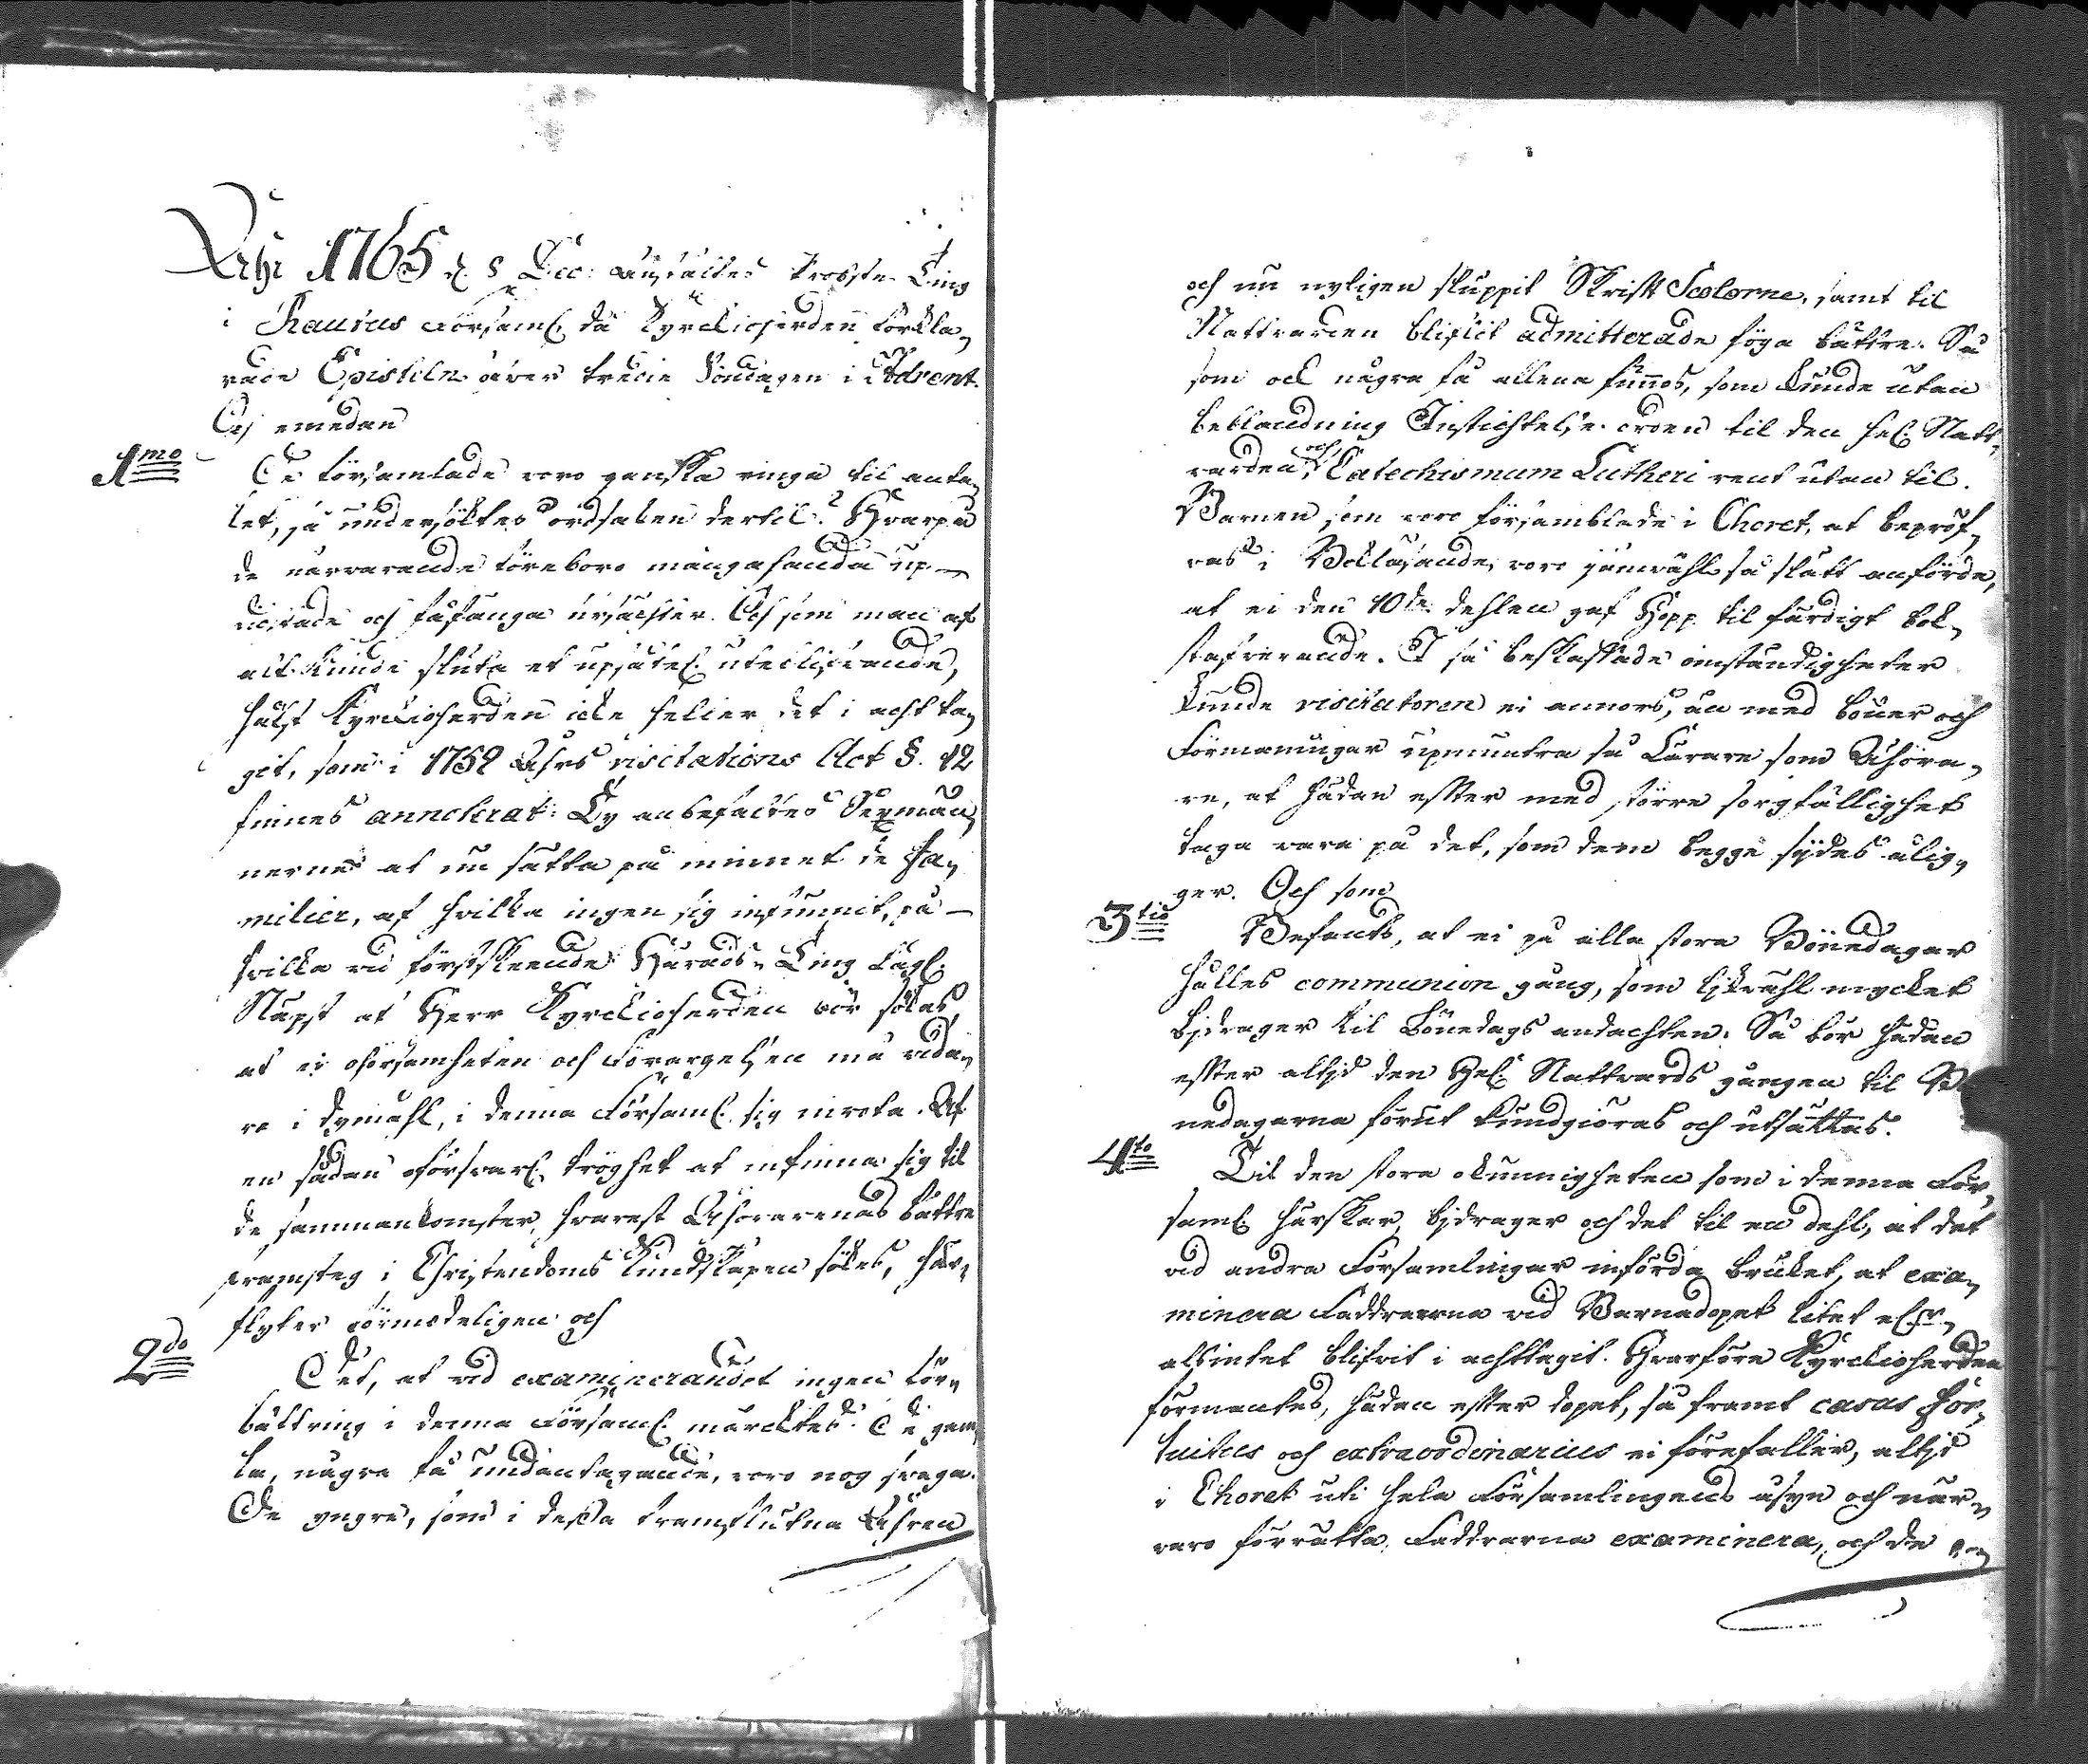 Åhr 1765 d. 8 Dec: anstältes Probste-Ting
i Raurus Församl. då Kyrckioherden förkla,,
rade Epistelen öfver tredie Söndagen i Advent.
Och emedan
1mo De församlade voro ganska ringa til anta,,
let, så undersöktes ordsaken dertil? Hvarpå
de närvarande föreboro mångahanda up-
dictade och fåfänga ursäkter. Och som man af
alt kunde sluta et upsåtel. uteblifvande,
hälst Kyrckioherden icke heller det i acht ta,,
git, som i 1752 Åhrs visitations Act §. 12
finnes annoterat: Ty anbefaltes Sexmän,,
nerne at nu sätta på minnet de Fa,,
milier, af hvilka ingen sig infunnit, på
hvilka vid förstskeende Härads-Ting Lagl.
Näpst af Herr Kyrckioherden bör sökas,
at ei ohörsamheten och Förargelsen må vida,,
re i dymåhl, i denna Församl. sig inrota. Af
en sådan oförsvarl. tröghet at infinna sig til
de sammankomster, hvarest Åhörarenas bättre
framsteg i Christendoms Kundskapen sökes, här,,
flyter förmodeligen och
2do Det, at vid examinerandet ingen för,,
bättring i denna Församl. märcktes. De gam,,
la, några få undantagande, voro nog svaga.
De yngre, som i dessa framflutna Åhren
och nu nyligen sluppit Skrift Scolorne, samt til
Nattvarden blifvit admitterade föga bättre. Så
som ock några få allena funnos, som kunde utan
beblandning Instichtelse orden til den hel. Natt,,
varden, och Catechismum Lutheri rent utan til.
Barnen som voro församblade i Choret, at bepröf,,
vas i Bokläsande, voro jämväl så slätt anförde,
at ei den 10de dehlen gaf Hopp til färdigt bok,,
stafverande. I så beskaffade omständigheter
kunde visitatoren ei annors, än med böner och
Förmaningar upmuntra så Lärare som Åhöra,,
re, at hädan effter med större sorgfällighet
taga vara på det, som dem begge sijdes ålig,,
ger. Och som
3tio Befants, at ei på alla stora Bönedagar
hålles communion gång, som likväl mycket
bidrager til Bönedags andachten. Så bör hädan
effter altid den Hel. Nattvards gången til Bö
nedagarna förut kundgiöras och utsättas.
4to Til den stora okunnigheten som i denna För,,
saml. härskar, bidrager och det til en dehl, at det
vid andra Församlingar införda bruket, at exa,,
minera Faddrarna vid Barnadopet litet eller
alsintet blifvit i achttagit. Hvarföre Kyrckioherden
förmantes, hädan effter dopet, så framt casus for,,
tuitus och extraordinarius ei förefaller, altid
i Choret uti hela Församlingens åsyn och när,,
varo förrätta, Faddrarna examinera, och de